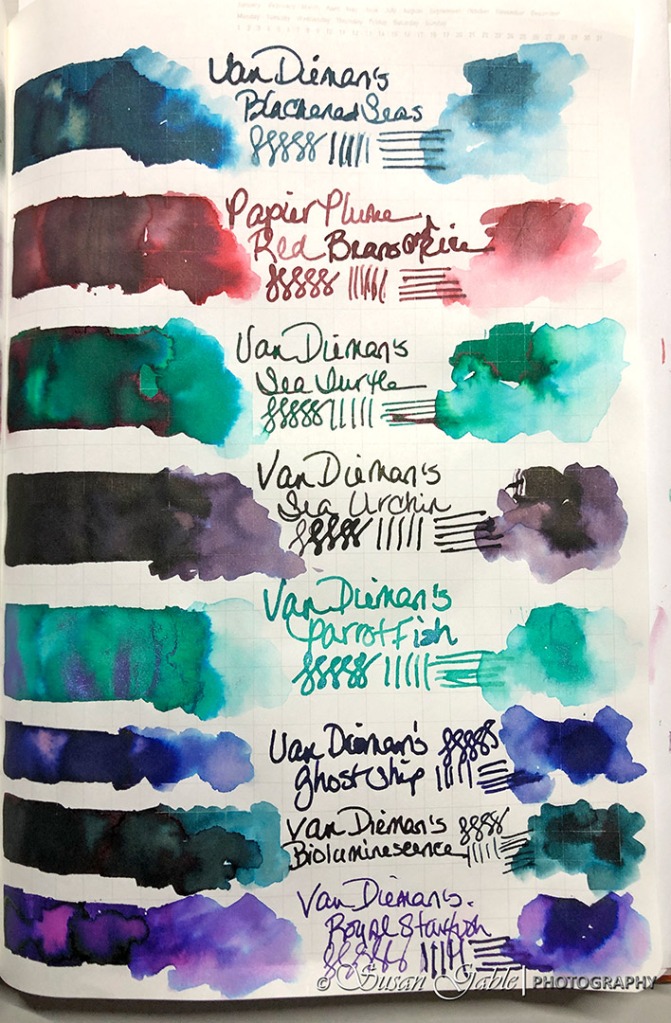 Van Dieman's
Blackened Seas
Papier Plume
Red
Van Dieman's
Sea Turtle
Van Dieman's
Sea Urchin
Van Dieman's
Parrot Fish
Van Dieman's
Ghost Ship
Van Dieman's
Bioluminescence
Van Dieman's
Royal Starfish
© Susan Gable | PHOTOGRAPHY